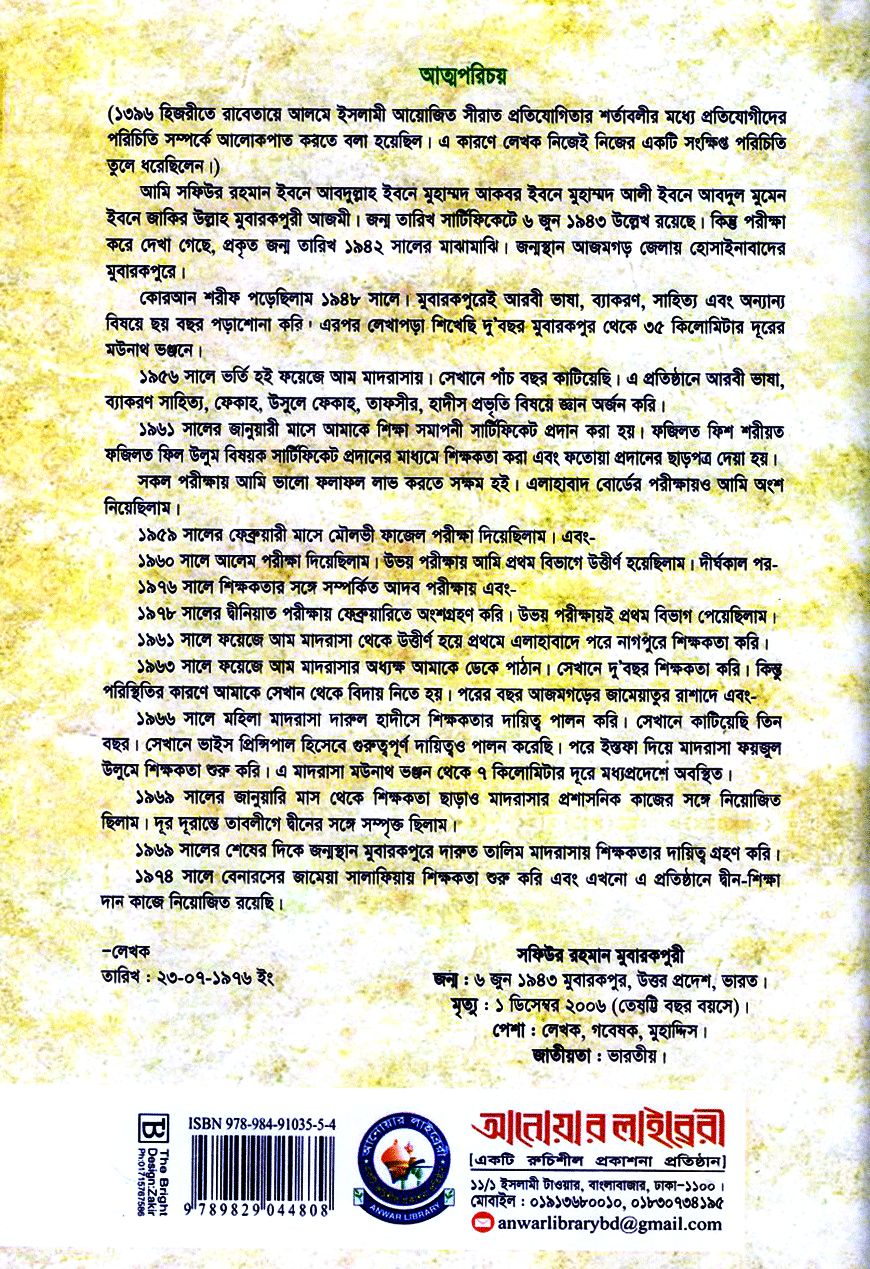 আত্মপরিচয়
(১৩৯৬ হিজরীতে রাবেতায়ে আলমে ইসলামী আয়োজিত সীরাত প্রতিযোগিতার শর্তাবলীর মধ্যে প্রতিযোগীদের
পরিচিতি সম্পর্কে আলোকপাত করতে বলা হয়েছিল। এ কারণে লেখক নিজেই নিজের একটি সংক্ষিপ্ত পরিচিতি
তুলে ধরেছিলেন।)
আমি সফিউর রহমান ইবনে আবদুল্লাহ ইবনে মুহাম্মদ আকবর ইবনে মুহাম্মদ আলী ইবনে আবদুল মুমেন
ইবনে জাকির উল্লাহ মুবারকপুরী আজমী। জন্ম তারিখ সার্টিফিকেটে ৬ জুন ১৯৪৩ উল্লেখ রয়েছে। কিন্তু পরীক্ষা
করে দেখা গেছে, প্রকৃত জন্ম তারিখ ১৯৪২ সালের মাঝামাঝি। জন্মস্থান আজমগড় জেলায় হোসাইনাবাদের
মুবারকপুরে।
কোরআন শরীফ পড়েছিলাম ১৯৪৮ সালে। মুবারকপুরেই আরবী ভাষা, ব্যাকরণ, সাহিত্য এবং অন্যান্য
বিষয়ে ছয় বছর পড়াশোনা করি। এরপর লেখাপড়া শিখেছি দু'বছর মুবারকপুর থেকে ৩৫ কিলোমিটার দূরের
মউনাথ ভঞ্জনে।
১৯৫৬ সালে ভর্তি হই ফয়েজে আম মাদরাসায়। সেখানে পাঁচ বছর কাটিয়েছি। এ প্রতিষ্ঠানে আরবী ভাষা,
ব্যাকরণ সাহিত্য, ফেকাহ, উসূলে ফেকাহ, তাফসীর, হাদীস প্রভৃতি বিষয়ে জ্ঞান অর্জন করি।
১৯৬১ সালের জানুয়ারী মাসে আমাকে শিক্ষা সমাপনী সার্টিফিকেট প্রদান করা হয়। ফজিলত ফিশ শরীয়ত
ফজিলত ফিল উলুম বিষয়ক সার্টিফিকেট প্রদানের মাধ্যমে শিক্ষকতা করা এবং ফতোয়া প্রদানের ছাড়পত্র দেয়া হয়।
সকল পরীক্ষায় আমি ভালো ফলাফল লাভ করতে সক্ষম হই। এলাহাবাদ বোর্ডের পরীক্ষায়ও আমি অংশ
নিয়েছিলাম।
১৯৫৯ সালের ফেব্রুয়ারী মাসে মৌলভী ফাজেল পরীক্ষা দিয়েছিলাম। এবং-
১৯৬০ সালে আলেম পরীক্ষা দিয়েছিলাম। উভয় পরীক্ষায় আমি প্রথম বিভাগে উত্তীর্ণ হয়েছিলাম। দীর্ঘকাল পর-
১৯৭৬ সালে শিক্ষকতার সঙ্গে সম্পর্কিত আদব পরীক্ষায় এবং-
১৯৭৮ সালের দ্বীনিয়াত পরীক্ষায় ফেব্রুয়ারিতে অংশগ্রহণ করি। উভয় পরীক্ষায়ই প্রথম বিভাগ পেয়েছিলাম।
১৯৬১ সালে ফয়েজে আম মাদরাসা থেকে উত্তীর্ণ হয়ে প্রথমে এলাহাবাদে পরে নাগপুরে শিক্ষকতা করি।
১৯৬৩ সালে ফয়েজে আম মাদরাসার অধ্যক্ষ আমাকে ডেকে পাঠান। সেখানে দু'বছর শিক্ষকতা করি। কিন্তু
পরিস্থিতির কারণে আমাকে সেখান থেকে বিদায় নিতে হয়। পরের বছর আজমগড়ের জামেয়াতুর রাশাদে এবং-
১৯৬৬ সালে মহিলা মাদরাসা দারুল হাদীসে শিক্ষকতার দায়িত্ব পালন করি। সেখানে কাটিয়েছি তিন
বছর। সেখানে ভাইস প্রিন্সিপাল হিসেবে গুরুত্বপূর্ণ দায়িত্বও পালন করেছি। পরে ইস্তফা দিয়ে মাদরাসা ফয়জুল
উলুমে শিক্ষকতা শুরু করি। এ মাদরাসা মউনাথ ভঞ্জন থেকে ৭ কিলোমিটার দূরে মধ্যপ্রদেশে অবস্থিত।
১৯৬৯ সালের জানুয়ারি মাস থেকে শিক্ষকতা ছাড়াও মাদরাসার প্রশাসনিক কাজের সঙ্গে নিয়োজিত
ছিলাম। দূর দূরান্তে তাবলীগে দ্বীনের সঙ্গে সম্পৃক্ত ছিলাম।
১৯৬৯ সালের শেষের দিকে জন্মস্থান মুবারকপুরে দারুত তালিম মাদরাসায় শিক্ষকতার দায়িত্ব গ্রহণ করি।
১৯৭৪ সালে বেনারসের জামেয়া সালাফিয়ায় শিক্ষকতা শুরু করি এবং এখনো এ প্রতিষ্ঠানে দ্বীন-শিক্ষা
দান কাজে নিয়োজিত রয়েছি।
–লেখক
তারিখ : ২৩-০৭-১৯৭৬ ইং
সফিউর রহমান মুবারকপুরী
জন্ম : ৬ জুন ১৯৪৩ মুবারকপুর, উত্তর প্রদেশ, ভারত।
মৃত্যু : ১ ডিসেম্বর ২০০৬ (তেষট্টি বছর বয়সে)।
পেশা : লেখক, গবেষক, মুহাদ্দিস।
জাতীয়তা : ভারতীয়।
The Bright
Design:Zakir
Ph:01715767586
ISBN 978-984-91035-5-4
9 789829 044808
আনোয়ার লাইব্রেরী
ANWAR LIBRARY
আনোয়ার লাইব্রেরী
[একটি রুচিশীল প্রকাশনা প্রতিষ্ঠান]
১১/১ ইসলামী টাওয়ার, বাংলাবাজার, ঢাকা-১১০০।
মোবাইল : ০১৯১৩৬৮০০১০, ০১৮৩০৭৩৪১৯৫
anwarlibrarybd@gmail.com